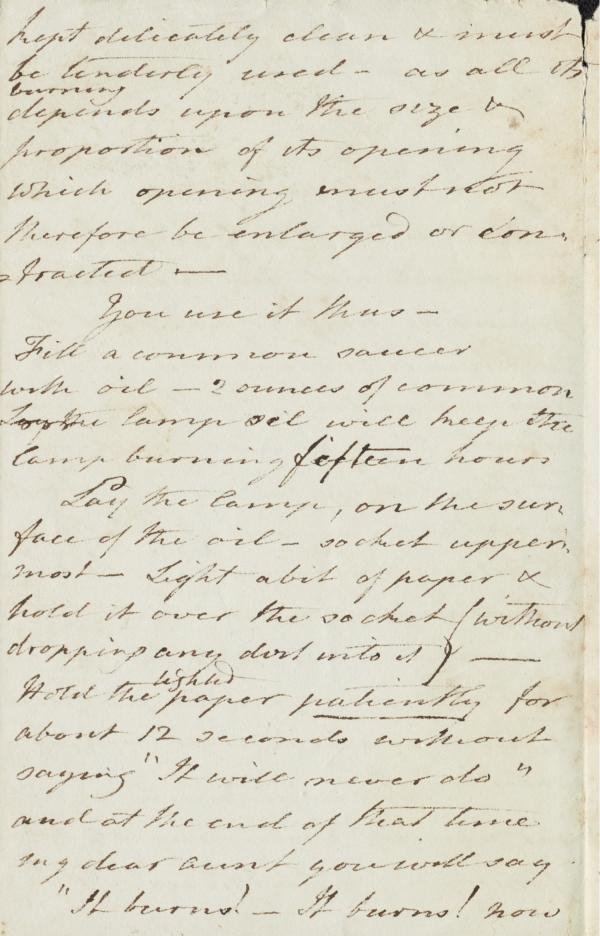 kept delicately clean & must
be tenderly used - as all its
burning
depends upon the size &
proportion of its opening
which opening must not
therefore be enlarged or con-
tracted —
You use it thus -
Fill a common saucer
with oil - 2 ounces of common
lamp oil will keep the
lamp burning fifteen hours
Lay the lamp, on the sur-
face of the oil - socket upper-
most - Light a bit of paper &
hold it over the socket (without
dropping any dirt into it) —
lighted
Hold the paper patiently for
about 12 seconds without
saying "It will never do"
and at the end of that time
my dear aunt you will say
"It burns! - It burns! now